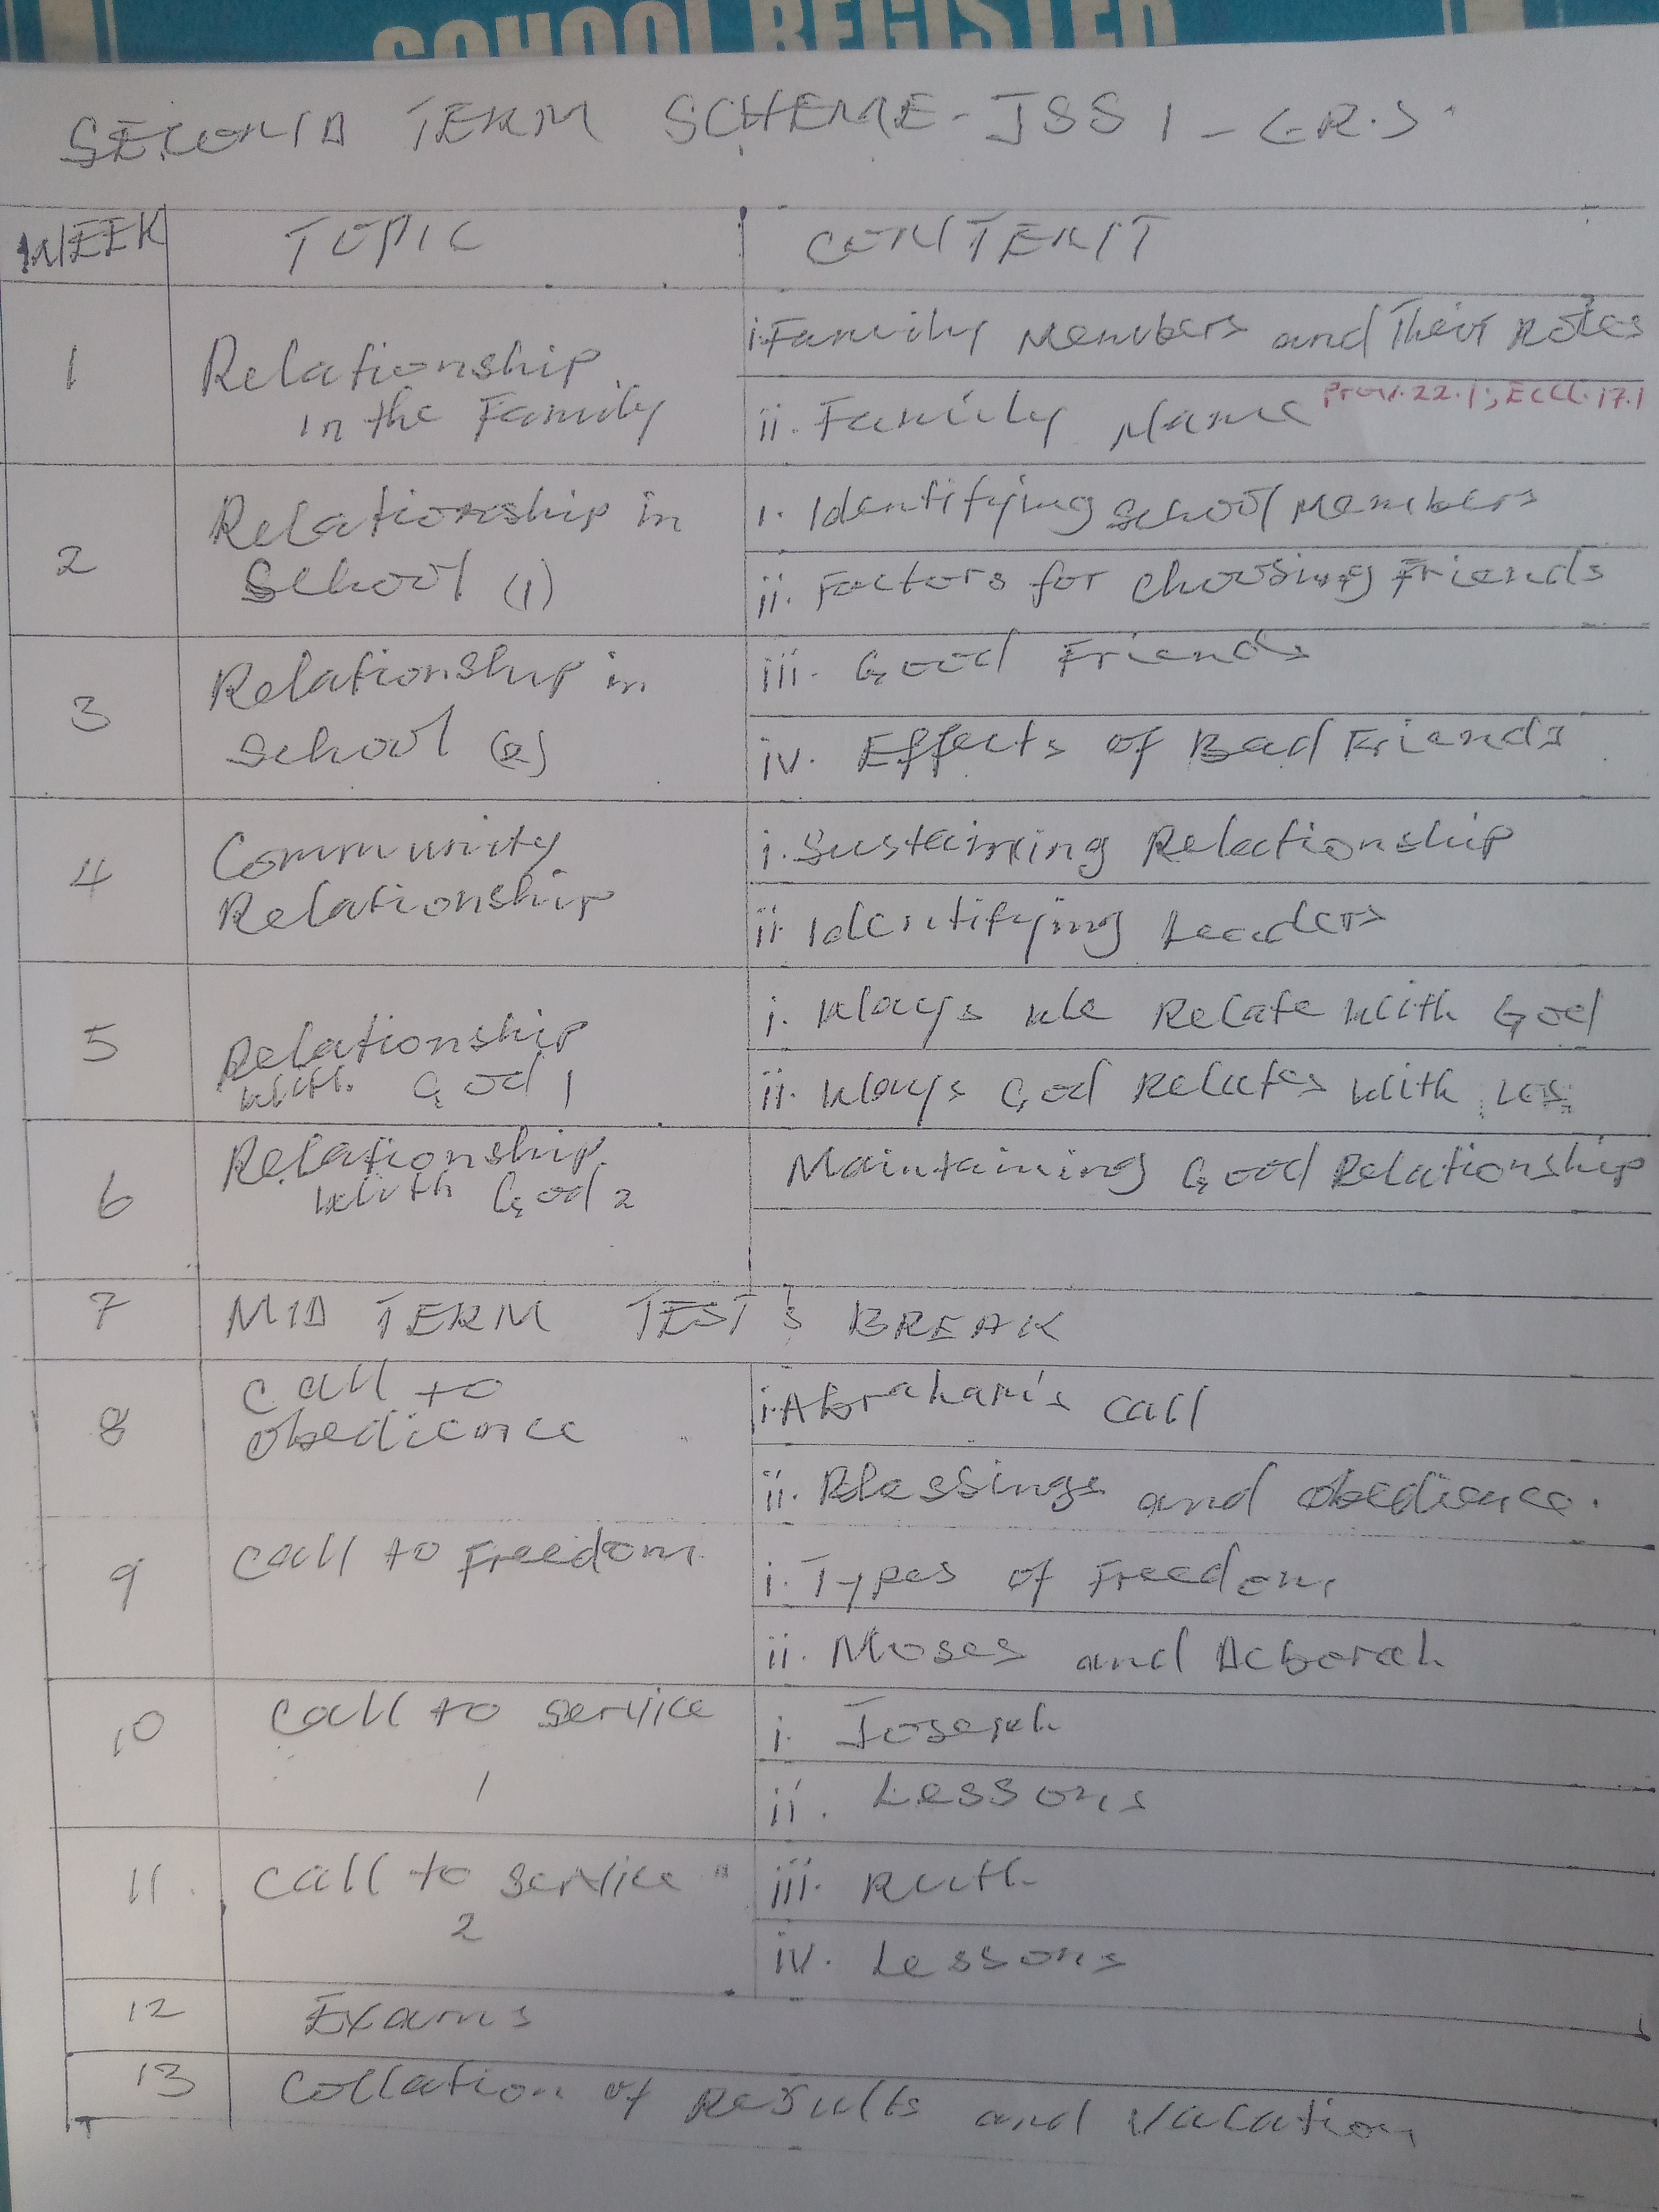 SCHOOL REGISTER
SECOND TERM SCHEME - JSS 1 - C.R.S.
WEEK TOPIC CONTENT
1 Relationship in the Family
i. Family Members and Their Roles
ii. Family Name Prov. 22.1; Eccl. 17.1
2 Relationship in School (1)
i. Identifying School Members
ii. Factors for Choosing Friends
3 Relationship in School (2)
iii. Good Friends
iv. Effects of Bad Friends
4 Community Relationship
i. Sustaining Relationship
ii. Identifying Leaders
5 Relationship With God 1
i. Ways We Relate With God
ii. Ways God Relates With us
6 Relationship With God 2
Maintaining Good Relationship
7 MID TERM TEST & BREAK
8 Call to Obedience
i. Abraham's Call
ii. Blessings and Obedience.
9 Call to Freedom
i. Types of Freedom
ii. Moses and Deborah
10 Call to Service 1
i. Joseph
ii. Lessons
11. Call to Service 2
iii. Ruth
iv. Lessons
12 Exams
13 Collation of Results and Vacation